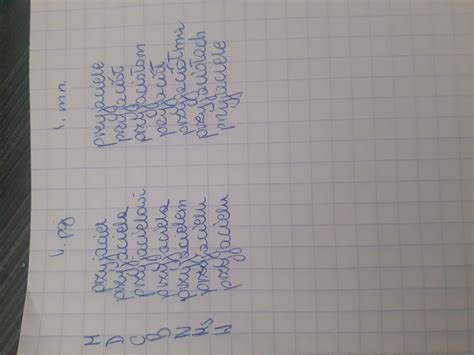 l. poj l. mn.
M przyjaciel przyjaciele
D przyjaciela przyjaciół
C przyjacielowi przyjaciołom
B przyjaciela przyjaciół
N przyjacielem przyjaciółmi
Ms przyjacielu przyjaciołach
W przyjacielu przyjaciele